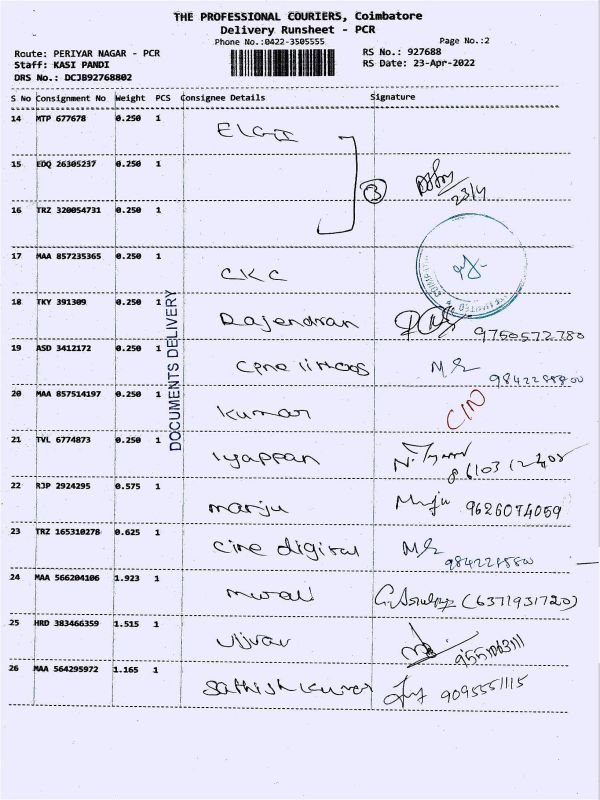 THE PROFESSIONAL COURIERS, Coimbatore
Delivery Runsheet - PCR
Phone No.:0422-3505555 Page No.:2
Route: PERIYAR NAGAR - PCR RS No.: 927688
Staff: KASI PANDI RS Date: 23-Apr-2022
DRS No.: DCJB92768802
S No Consignment No Weight PCS Consignee Details Signature
14 MTP 677678 0.250 1 ELGI
15 EDQ 26305237 0.250 1 3 23/4
16 TRZ 320054731 0.250 1
17 MAA 857235365 0.250 1 CKC
18 TKY 391309 0.250 1 Rajendran 9750572780
19 ASD 3412172 0.250 1
20 MAA 857514197 0.250 1 Kumar
21 TVL 6774873 0.250 1 Iyappan
22 RJP 2924295 0.575 1 manju Manju 9626074059
23 TRZ 165310278 0.625 1 cine digital
24 MAA 566204106 1.923 1 murali (6371931720)
25 HRD 383466359 1.515 1
26 MAA 564295972 1.165 1 Sathish Kumar 9095551115
DOCUMENTS DELIVERY